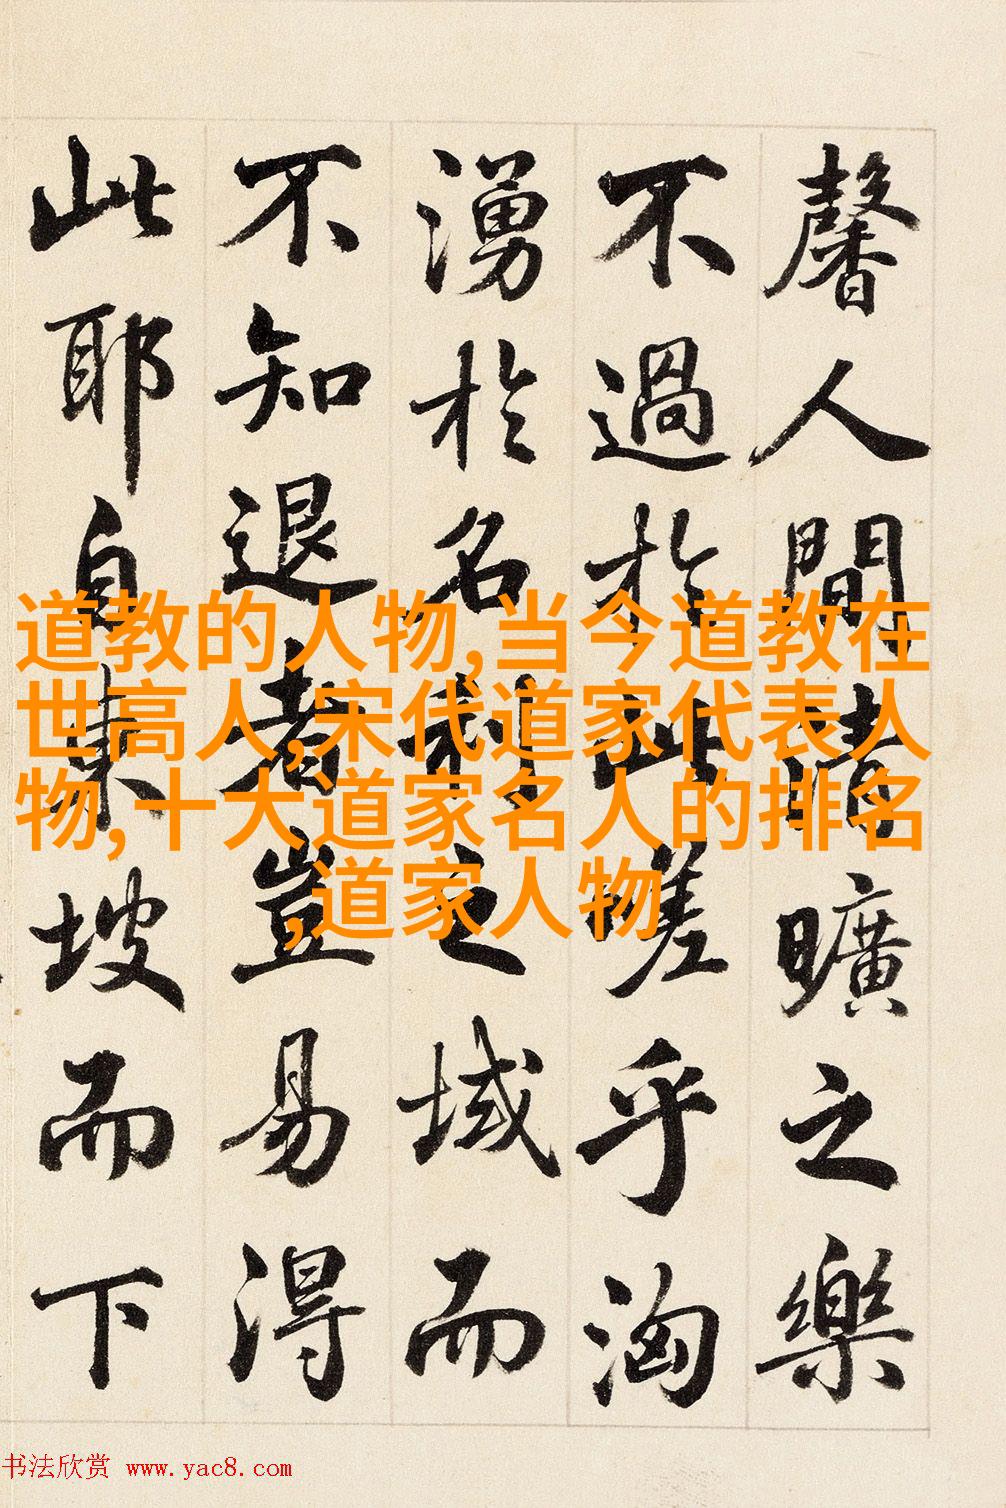 馨人間清曠之樂
不過於此嗟乎洶
湧於名利之域而
不知退者豈易得
此耶自東坡而下
道教的人物,当今道教在
世高人,宋代道家代表人
物,十大道家名人的排名
,道家人物
书法欣赏 www.yac8.com